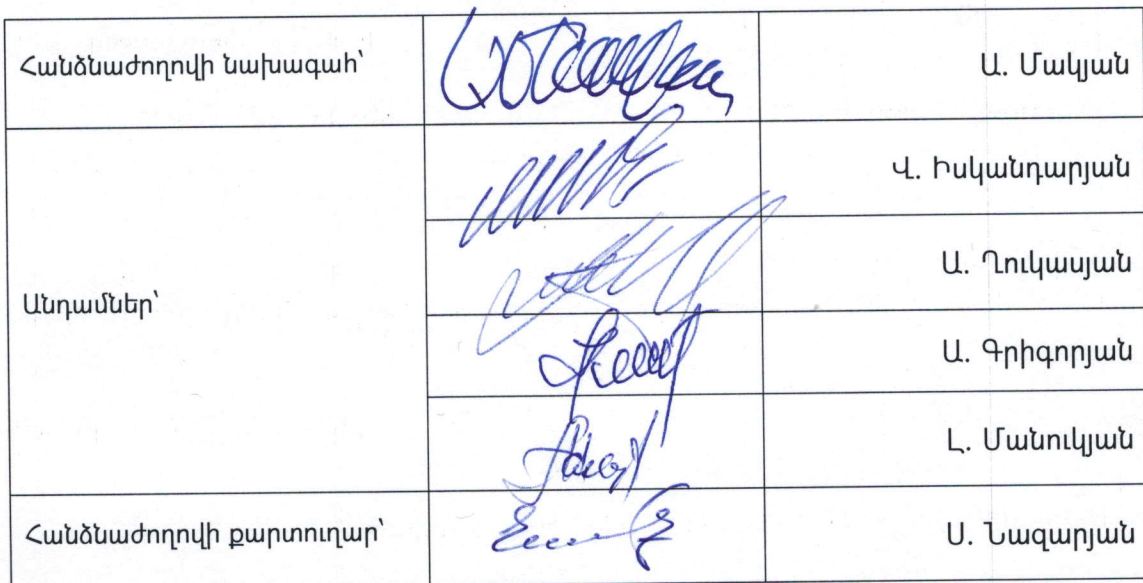 Հանձնաժողովի նախագահ՝
Ա. Մակյան
Անդամներ՝
Վ. Իսկանդարյան
Ա. Ղուկասյան
Ա. Գրիգորյան
Լ. Մանուկյան
Հանձնաժողովի քարտուղար՝
Ս. Նազարյան